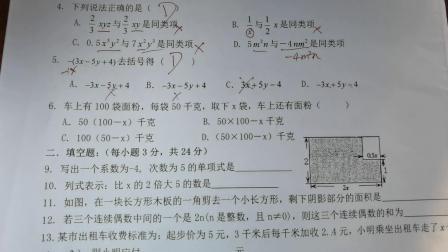 4. 下列说法正确的是( D )
A. 2/3 xyz与2/3 xy是同类项 × B. 1/x与1/2 x是同类项 ×
C. 0.5x³y²与7x²y³是同类项 × D. 5m²n与-4nm²是同类项
-4m²n
5. -(3x-5y+4)去括号得( D )
A. -3x-5y+4 B. -3x-5y+4 C. 3x+5y-4 D. -3x+5y-4
6. 车上有100袋面粉,每袋50千克,取下x袋,车上还有面粉( )
A. 50(100-x)千克 B. 50×100-x 千克
C. 100(50-x)千克 D. 50x千克
二. 填空题:(每小题3分,共24分)
9. 写出一个系数为-4,次数为5的单项式是
10. 列式表示:比x的2倍大5的数是
0.5a
2a
11. 如图,在一块长方形木板的一角剪去一个小长方形,剩下阴影部分的面积是
12. 若三个连续偶数中间的一个是2n(n是整数,且n≠0),则这三个连续偶数的和为
13. 某市出租车收费标准为:起步价为5元,3千米后每千米加收2.4元,小明乘坐出租车走了x